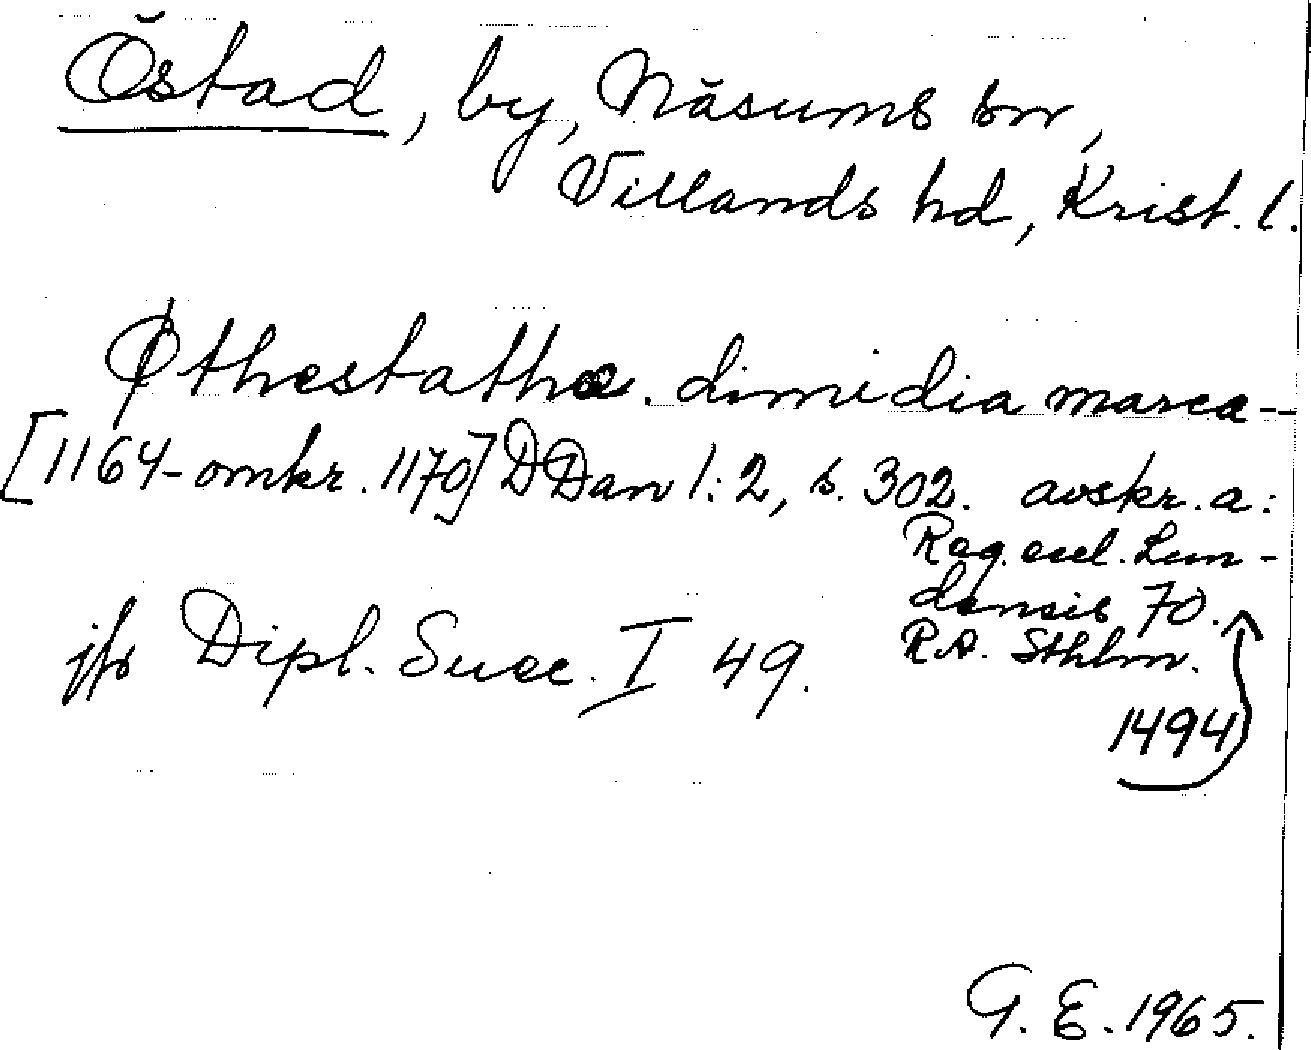 Östad, by, Näsums sn,
Villands hd, Krist. l.
Øthestathæ. dimidia marca--
[1164-omkr. 1170] DDan 1:2, s. 302. avskr. a:
Reg. eccl. Lun-
densis 70.
R.A. Sthlm.
jfr Dipl. Suec. I 49.
1494
G. E. 1965.